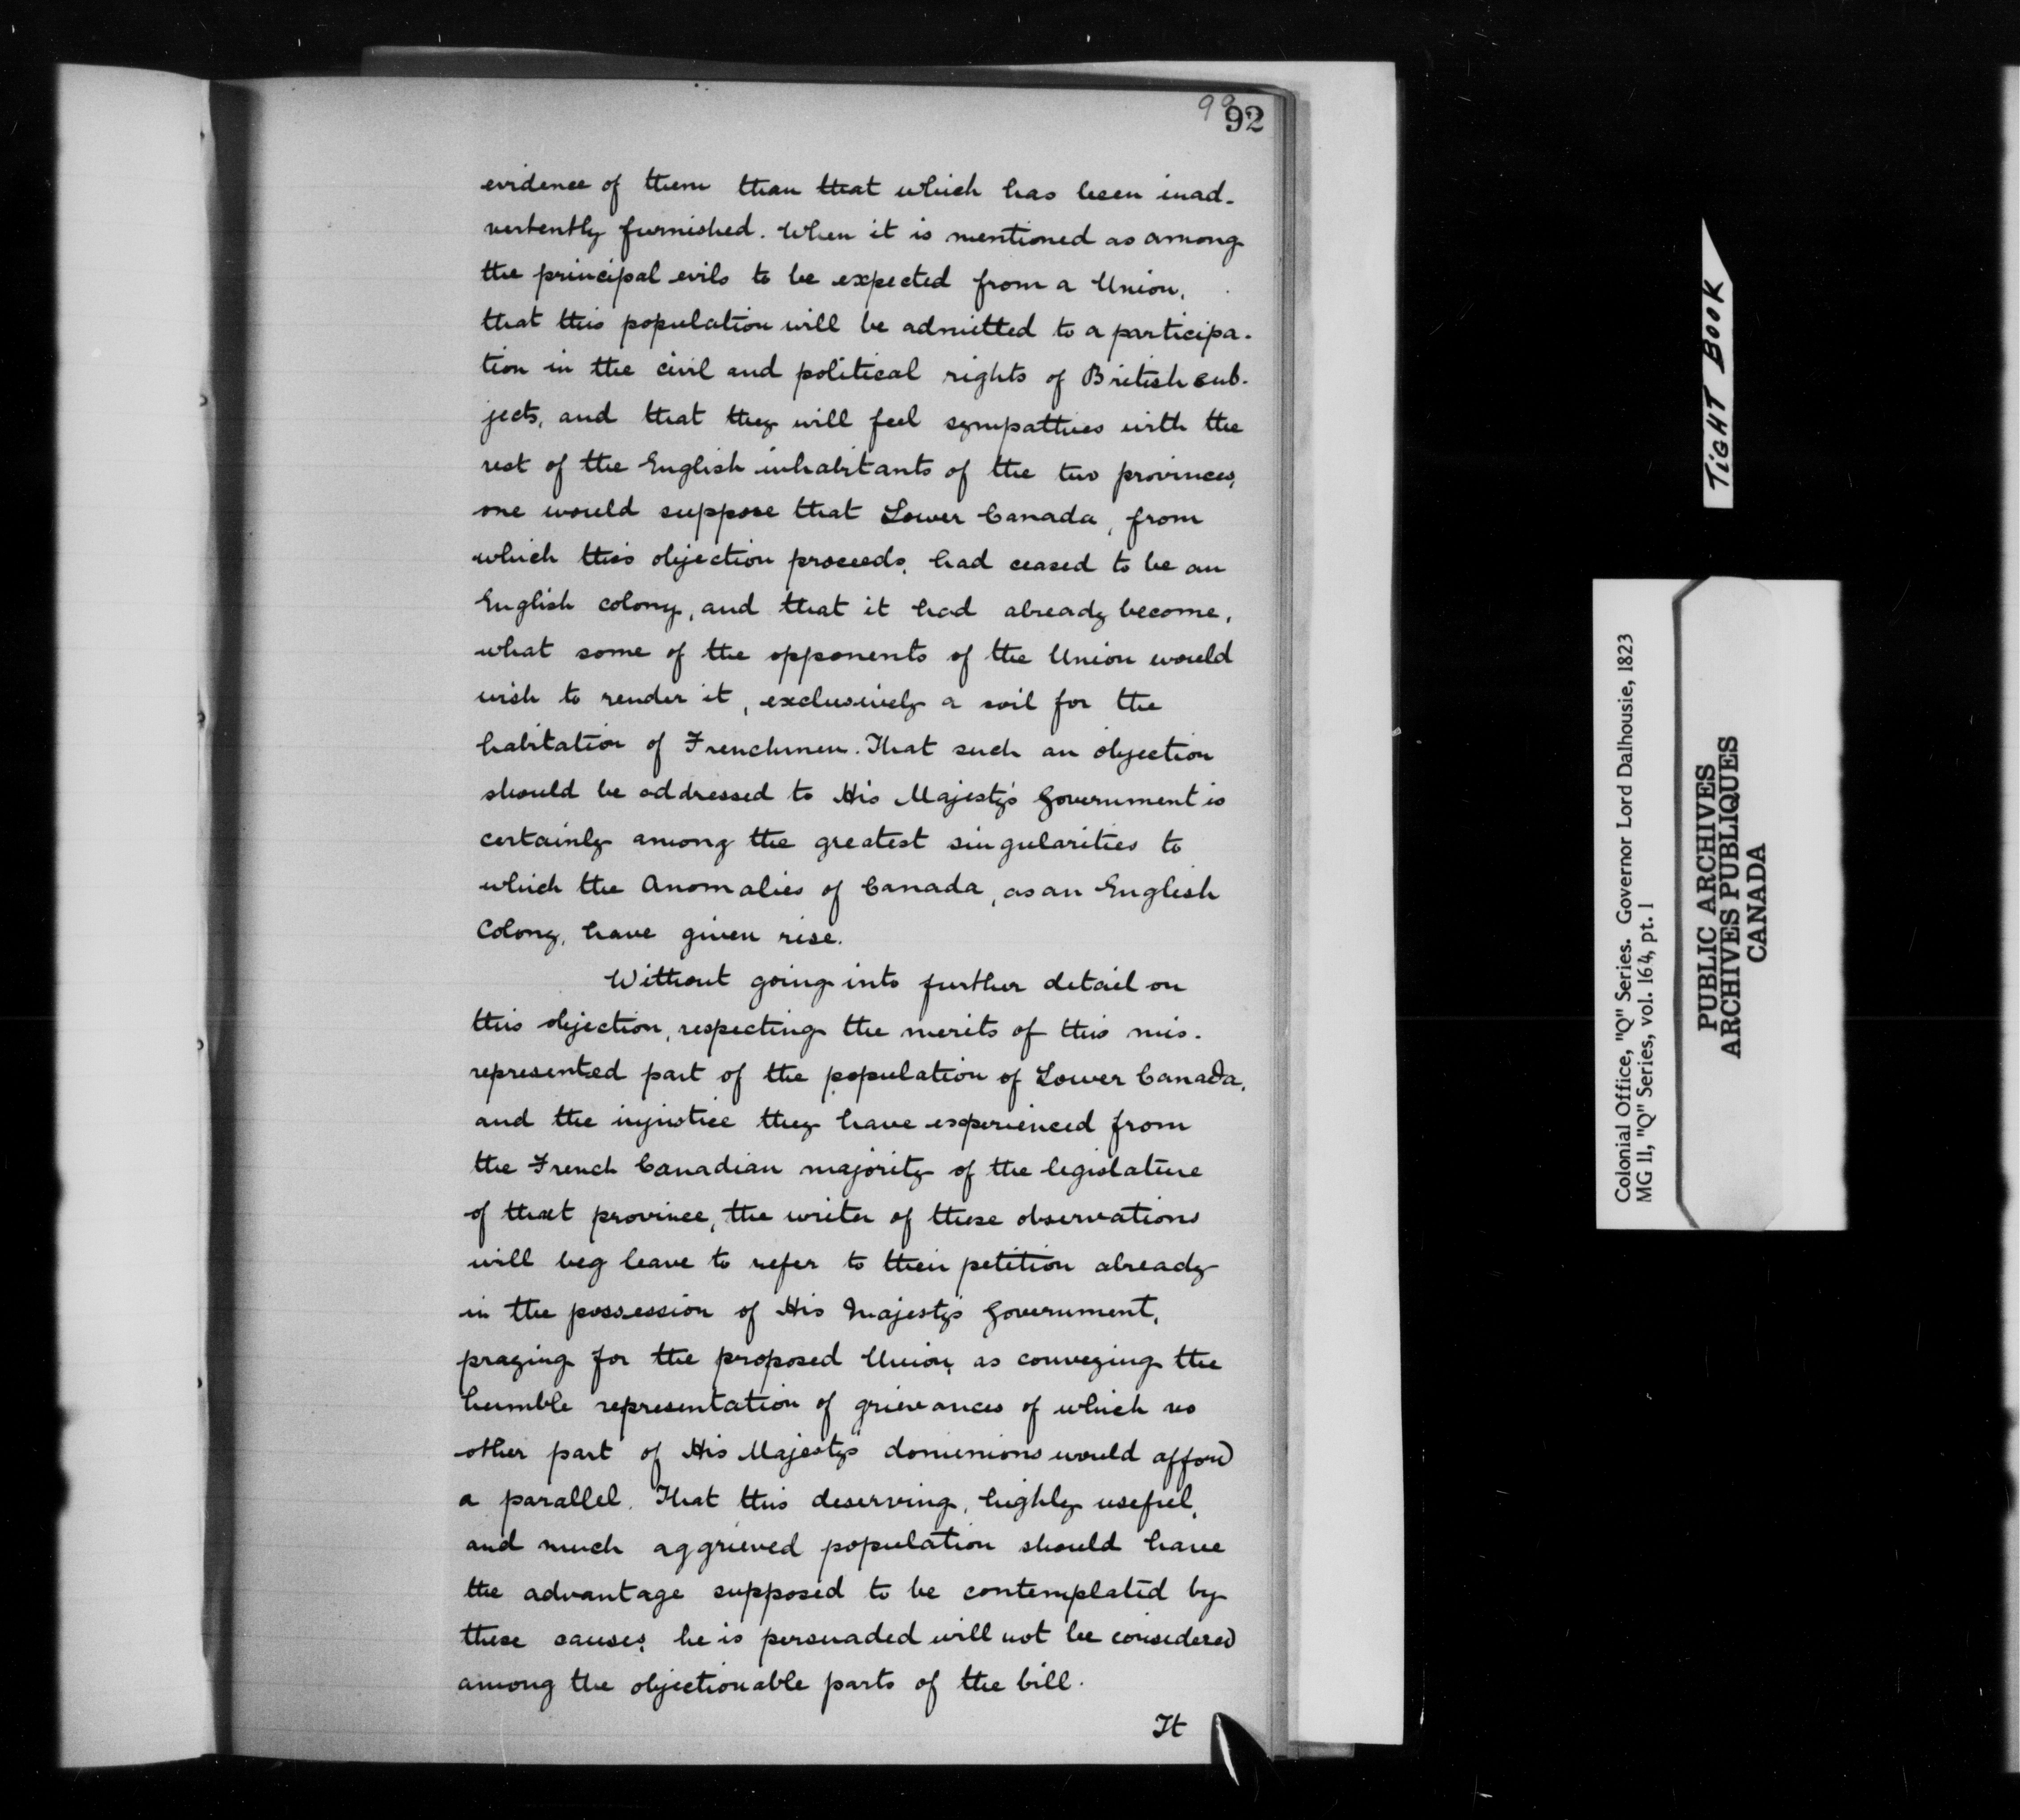 99
92
evidence of them than that which has been inad-
vertently furnished. When it is mentioned as among
the principal evils to be expected from a Union,
that this population will be admitted to a participa-
tion in the civil and political rights of British sub-
jects, and that they will feel sympathies with the
rest of the English inhabitants of the two provinces,
one would suppose that Lower Canada, from
which this objection proceeds, had ceased to be an
English colony, and that it had already become,
what some of the opponents of the Union would
wish to render it, exclusively a soil for the
habitation of Frenchmen. That such an objection
should be addressed to His Majesty's Government is
certainly among the greatest singularities to
which the Anomalies of Canada, as an English
Colony, have given rise.
Without going into further detail on
this objection, respecting the merits of this mis-
represented part of the population of Lower Canada,
and the injustice they have experienced from
the French Canadian majority of the legislature
of that province, the writer of these observations
will beg leave to refer to their petition already
in the possession of His Majesty's Government,
praying for the proposed Union, as conveying the
humble representation of grievances of which no
other part of His Majesty's dominions would afford
a parallel. That this deserving, highly useful,
and much aggrieved population should have
the advantage supposed to be contemplated by
these causes, he is persuaded will not be considered
among the objectionable parts of the bill.
It
TIGHT BOOK
Colonial Office, "Q" Series. Governor Lord Dalhousie, 1823
MG 11, "Q" Series, vol. 164, pt. 1
PUBLIC ARCHIVES
ARCHIVES PUBLIQUES
CANADA